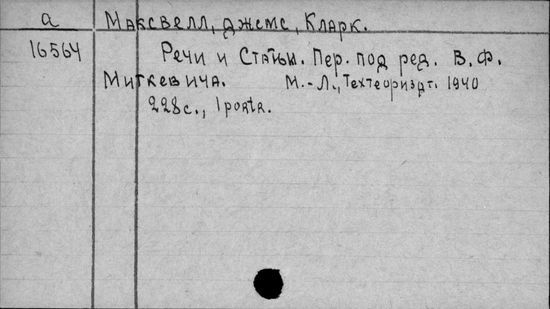 а Максвелл, Джемс, Кларк.
16564 Речи и Статьи. Пер. под ред. В. Ф.
Миткевича. М.-Л., Техтеориздт. 1940
228с., 1 portr.